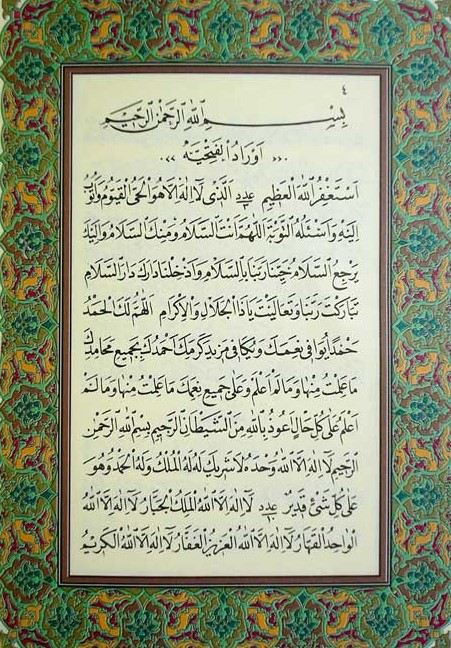 ٤
بِسْمِ اللهِ الرَّحْمٰنِ الرَّحِيْمِ
«« اَوْرَادُ الْفَتْحِيَّه »»
اَسْتَغْفِرُ اللهَ الْعَظِيْمِ عدد ٣ اَلَّذِى لَا اِلٰهَ اِلَّا هُوَ الْحَىُّ الْقَيُّومُ وَاَتُوبُ
اِلَيْهِ وَاَسْئَلُهُ التَّوْبَةَ اَللّٰهُمَّ اَنْتَ السَّلَامُ وَمِنْكَ السَّلَامُ وَاِلَيْكَ
يَرْجِعُ السَّلَامُ حَيِّنَا رَبَّنَا بِالسَّلَامِ وَاَدْخِلْنَا دَارَكَ دَارَ السَّلَامِ
تَبَارَكْتَ رَبَّنَا وَتَعَالَيْتَ يَا ذَا الْجَلَالِ وَالْاِكْرَامِ اَللّٰهُمَّ لَكَ الْحَمْدُ
حَمْدًا يُوَافِى نِعَمَكَ وَيُكَافِى مَزِيدَ كَرَمِكَ اَحْمَدُكَ بِجَمِيعِ مَحَامِدِكَ
مَا عَلِمْتُ مِنْهَا وَمَا لَمْ اَعْلَمْ وَعَلٰى جَمِيعِ نِعَمِكَ مَا عَلِمْتُ مِنْهَا وَمَا لَمْ
اَعْلَمْ عَلٰى كُلِّ حَالٍ اَعُوذُ بِاللهِ مِنَ الشَّيْطَانِ الرَّجِيمِ بِسْمِ اللهِ الرَّحْمٰنِ
الرَّحِيمِ لَا اِلٰهَ اِلَّا اللهُ وَحْدَهُ لَا شَرِيكَ لَهُ لَهُ الْمُلْكُ وَلَهُ الْحَمْدُ وَهُوَ
عَلٰى كُلِّ شَىْءٍ قَدِيرٌ عدد لَا اِلٰهَ اِلَّا اللهُ الْمَلِكُ الْجَبَّارُ لَا اِلٰهَ اِلَّا اللهُ
الْوَاحِدُ الْقَهَّارُ لَا اِلٰهَ اِلَّا اللهُ الْعَزِيزُ الْغَفَّارُ لَا اِلٰهَ اِلَّا اللهُ الْكَرِيمُ